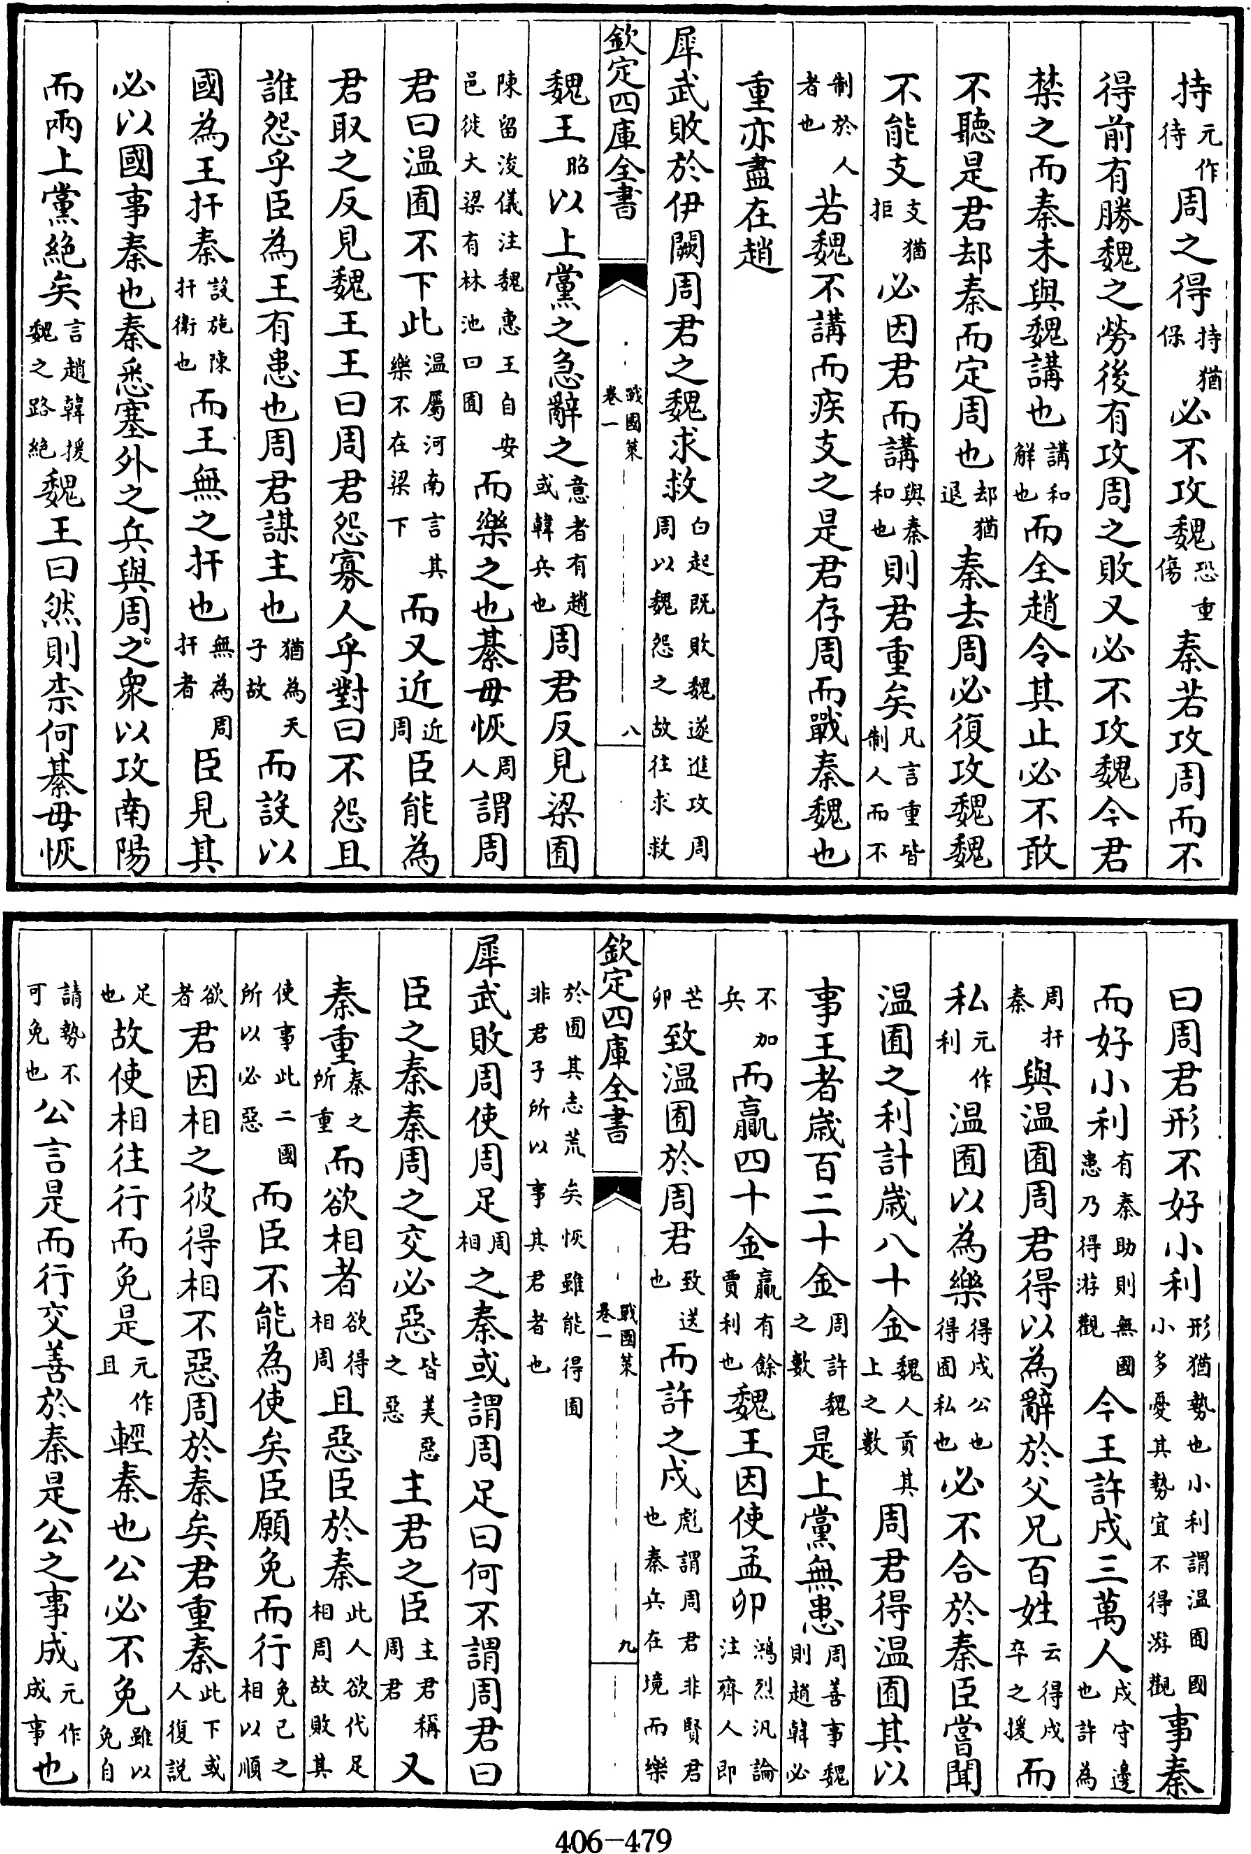 持元作待周之得持猶保必不攻魏恐重傷秦若攻周而不
得前有勝魏之勞後有攻周之敗又必不攻魏今君
禁之而秦未與魏講也講和解也而全趙令其止必不敢
不聽是君却秦而定周也却猶退秦去周必復攻魏魏
不能支支猶拒必因君而講與秦和也則君重矣凡言重皆制人而不
制於人者也若魏不講而疾支之是君存周而戰秦魏也
重亦盡在趙
犀武敗於伊闕周君之魏求救白起既敗魏遂進攻周周以魏怨之故往求救
欽定四庫全書
戰國策
卷一
八
魏王昭以上黨之急辭之意者有趙或韓兵也周君反見梁囿
陳留浚儀注魏惠王自安邑徙大梁有林池曰囿而樂之也綦毋恢周人謂周
君曰温囿不下此温屬河南言其樂不在梁下而又近近周臣能為
君取之反見魏王王曰周君怨寡人乎對曰不怨且
誰怨乎臣為王有患也周君謀主也猶為天子故而設以
國為王扞秦設施陳扞衛也而王無之扞也無為周扞者臣見其
必以國事秦也秦悉塞外之兵與周之衆以攻南陽
而兩上黨絶矣言趙韓援魏之路絶魏王曰然則柰何綦毋恢
曰周君形不好小利形猶勢也小利謂温囿國小多憂其勢宜不得游觀事秦
而好小利有秦助則無國患乃得游觀今王許戍三萬人戍守邊也許為
周扞秦與温囿周君得以為辭於父兄百姓云得戍卒之援而
私元作利温囿以為樂得戍公也得囿私也必不合於秦臣嘗聞
温囿之利計歳八十金魏人貢其上之數周君得温囿其以
事王者歳百二十金周許魏之數是上黨無患周善事魏則趙韓必
不加兵而贏四十金贏有餘賈利也魏王因使孟卯鴻烈汜論注齊人即
芒卯致温囿於周君致送也而許之戍彪謂周君非賢君也秦兵在境而樂
欽定四庫全書
戰國策
卷一
九
於囿其志荒矣恢雖能得囿非君子所以事其君者也
犀武敗周使周足周相之秦或謂周足曰何不謂周君曰
臣之秦秦周之交必惡皆美惡之惡主君之臣主君稱周君又
秦重秦之所重而欲相者欲得相周且惡臣於秦此人欲代足相周故敗其
使事此二國所以必惡而臣不能為使矣臣願免而行免已之相以順
欲者君因相之彼得相不惡周於秦矣君重秦此下或人復説
足也故使相往行而免是元作且輕秦也公必不免雖以免自
請勢不可免也公言是而行交善於秦是公之事成元作成事也
406-479